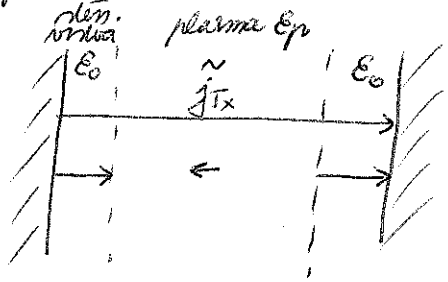 stěn.
vrstva
plasma εp
ε0
~
jTx
ε0